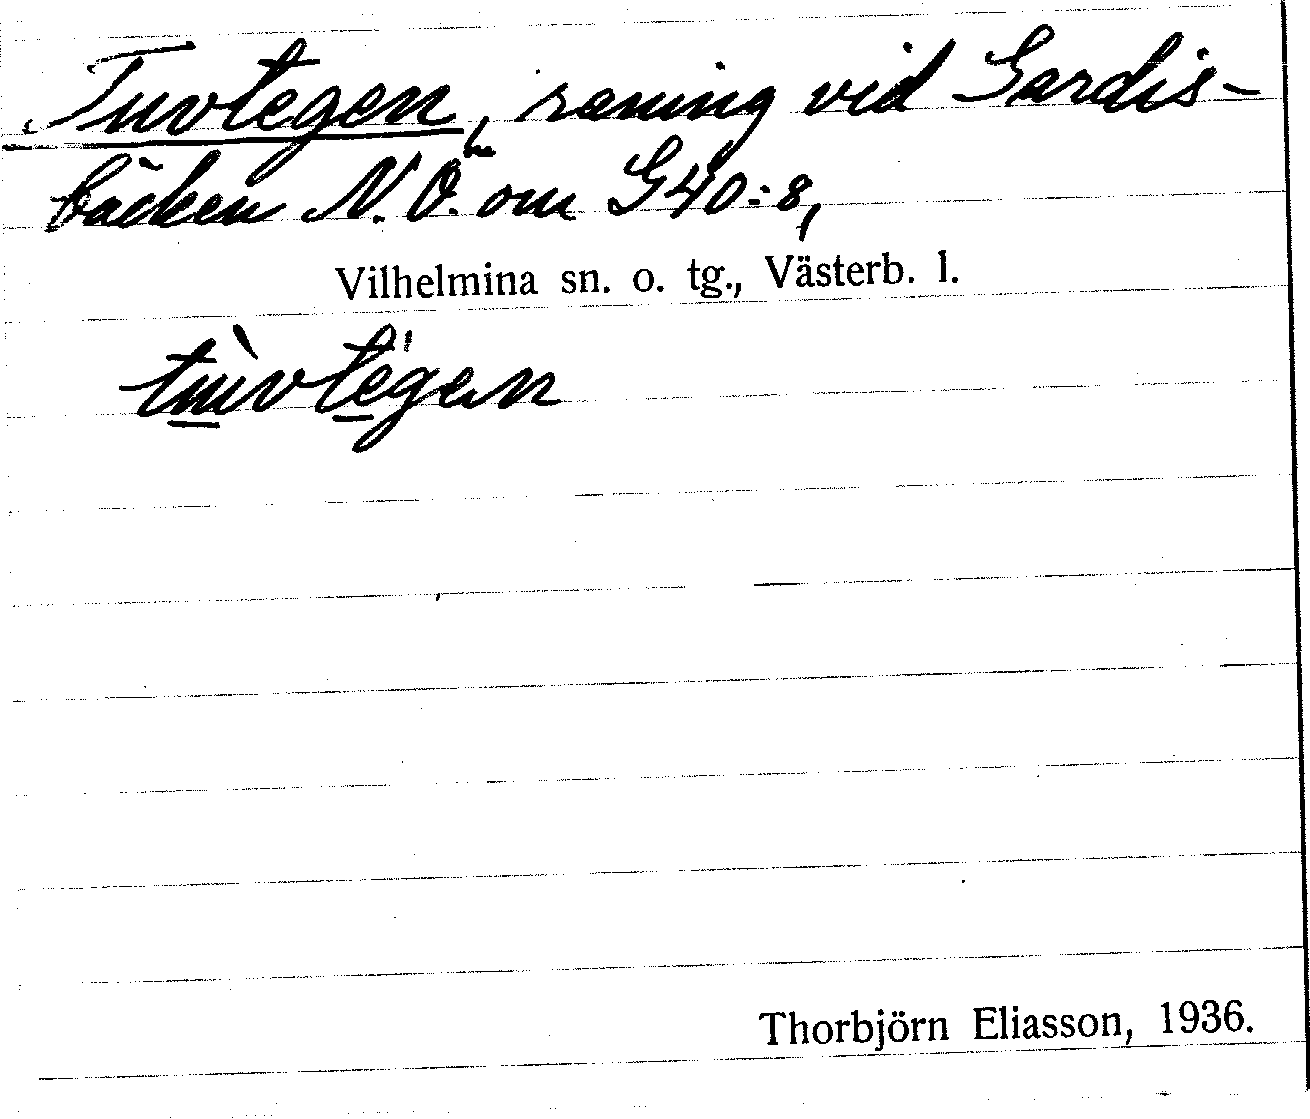 Tuvtegen, raning vid Sardis-
bäcken N.Ö. om G40:8,
Vilhelmina sn. o. tg., Västerb. l.
tùvtegen
Thorbjörn Eliasson, 1936.